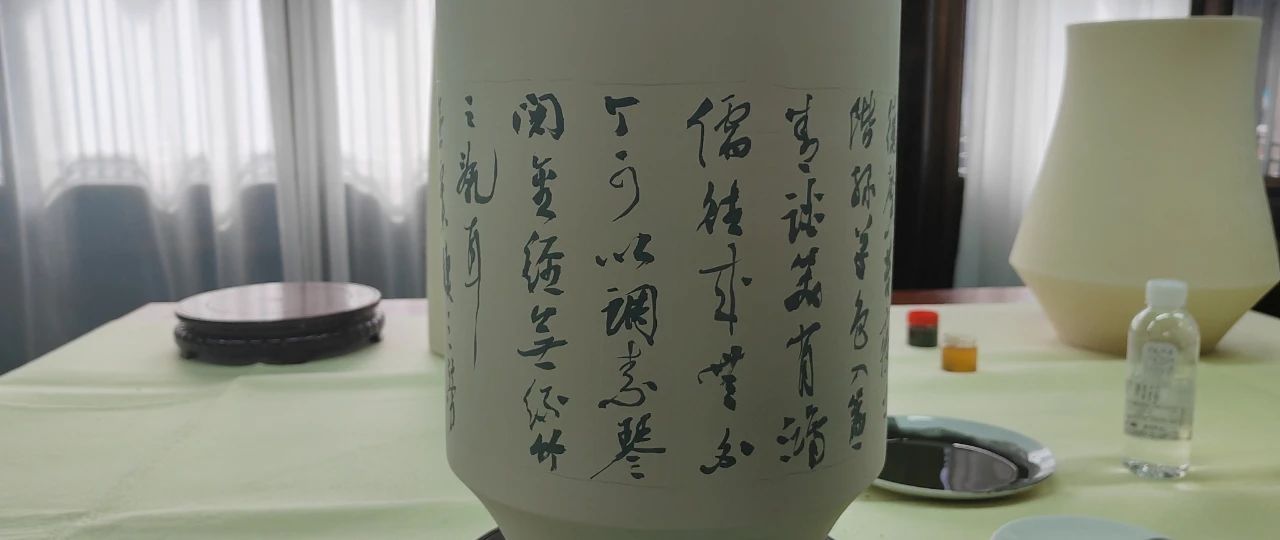 階綠草色入簾
青談笑有鴻
儒往來無白
丁可以調素琴
閱金經無絲竹
之亂耳